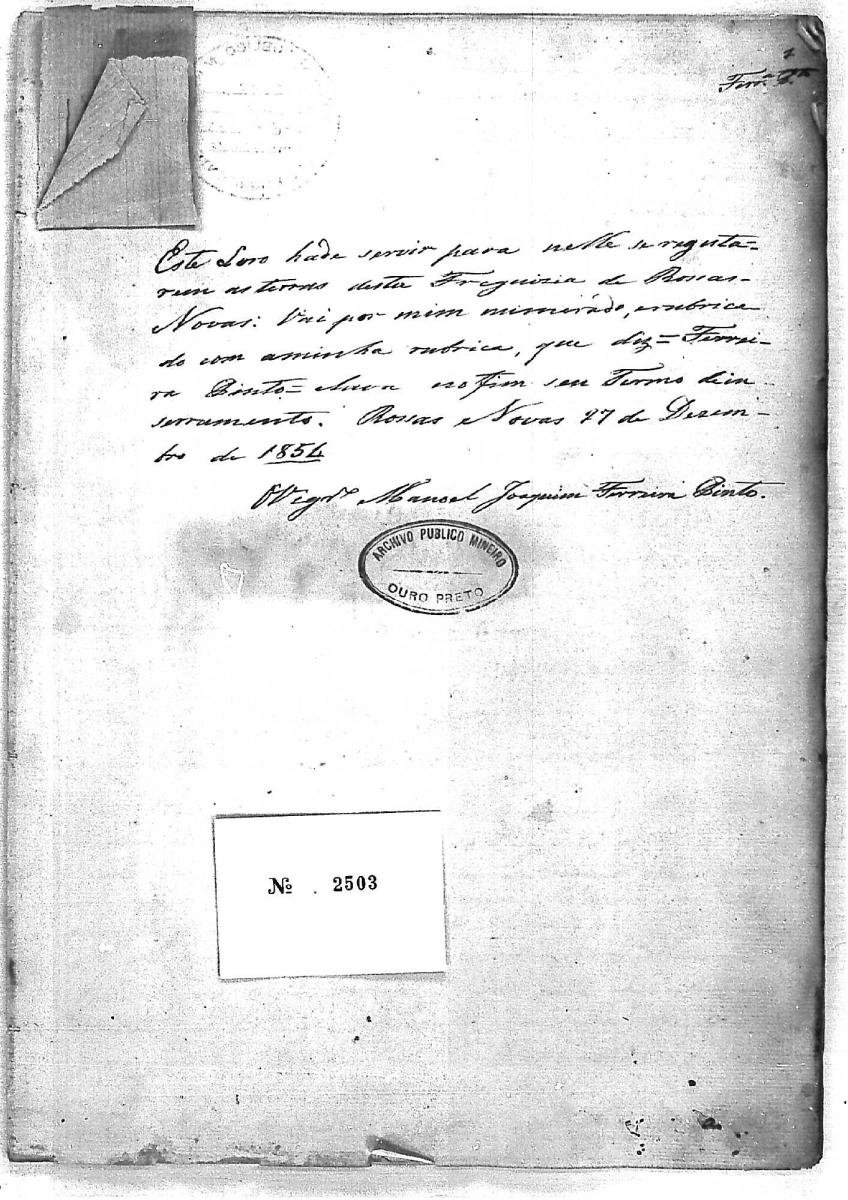 1
Ferr.ª P.to
Este Livro hade servir para nelle se regista=
rem as terras desta Freguizia de Rossas-
Novas: Vai por mim numerado, erubrica
do com aminha rubrica, que diz= Ferrei-
ra Pinto= eleva no fim seu Termo dein
serramento. Rossas Novas 27 de Dezem-
bro de 1854
OVigr.º Manoel Joaquim Ferreira Pinto.
ARCHIVO PUBLICO MINEIRO
OURO PRETO
Nº 2503